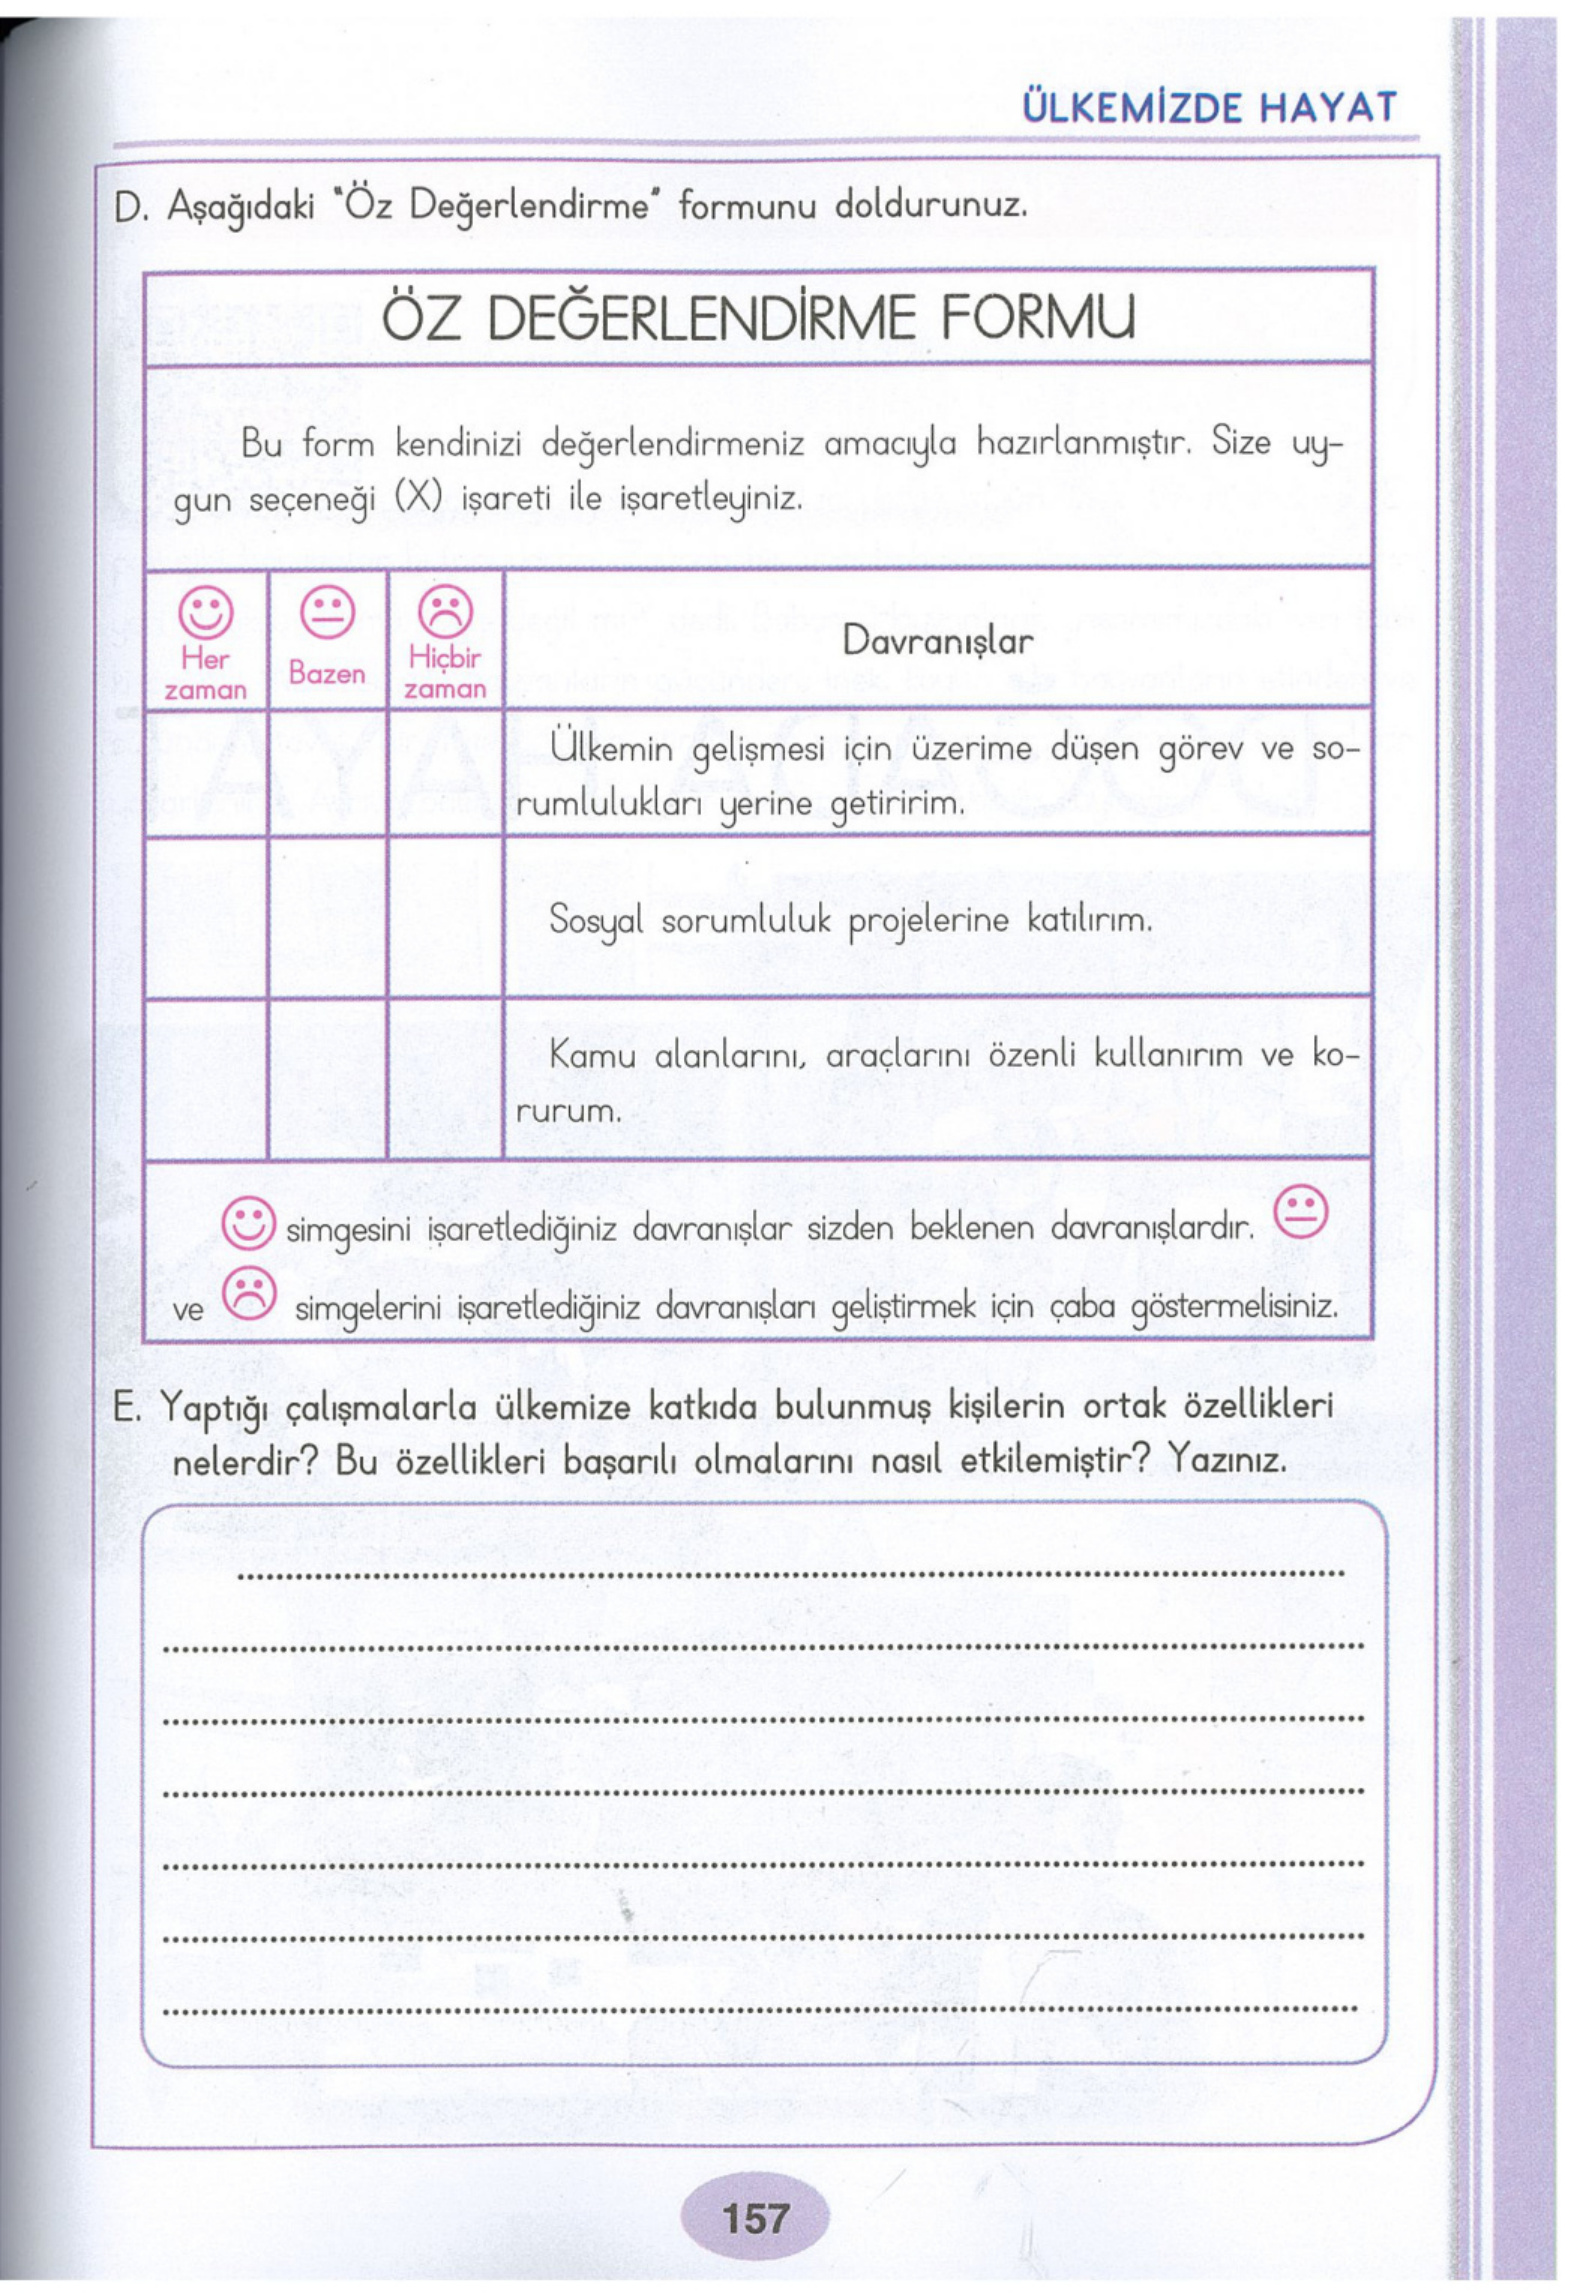 ÜLKEMİZDE HAYAT
D. Aşağıdaki "Öz Değerlendirme" formunu doldurunuz.
ÖZ DEĞERLENDİRME FORMU
Bu form kendinizi değerlendirmeniz amacıyla hazırlanmıştır. Size uy-
gun seçeneği (X) işareti ile işaretleyiniz.
Her
zaman
Bazen
Hiçbir
zaman
Davranışlar
Ülkemin gelişmesi için üzerime düşen görev ve so-
rumlulukları yerine getiririm.
Sosyal sorumluluk projelerine katılırım.
Kamu alanlarını, araçlarını özenli kullanırım ve ko-
rurum.
simgesini işaretlediğiniz davranışlar sizden beklenen davranışlardır.
ve simgelerini işaretlediğiniz davranışları geliştirmek için çaba göstermelisiniz.
E. Yaptığı çalışmalarla ülkemize katkıda bulunmuş kişilerin ortak özellikleri
nelerdir? Bu özellikleri başarılı olmalarını nasıl etkilemiştir? Yazınız.
157